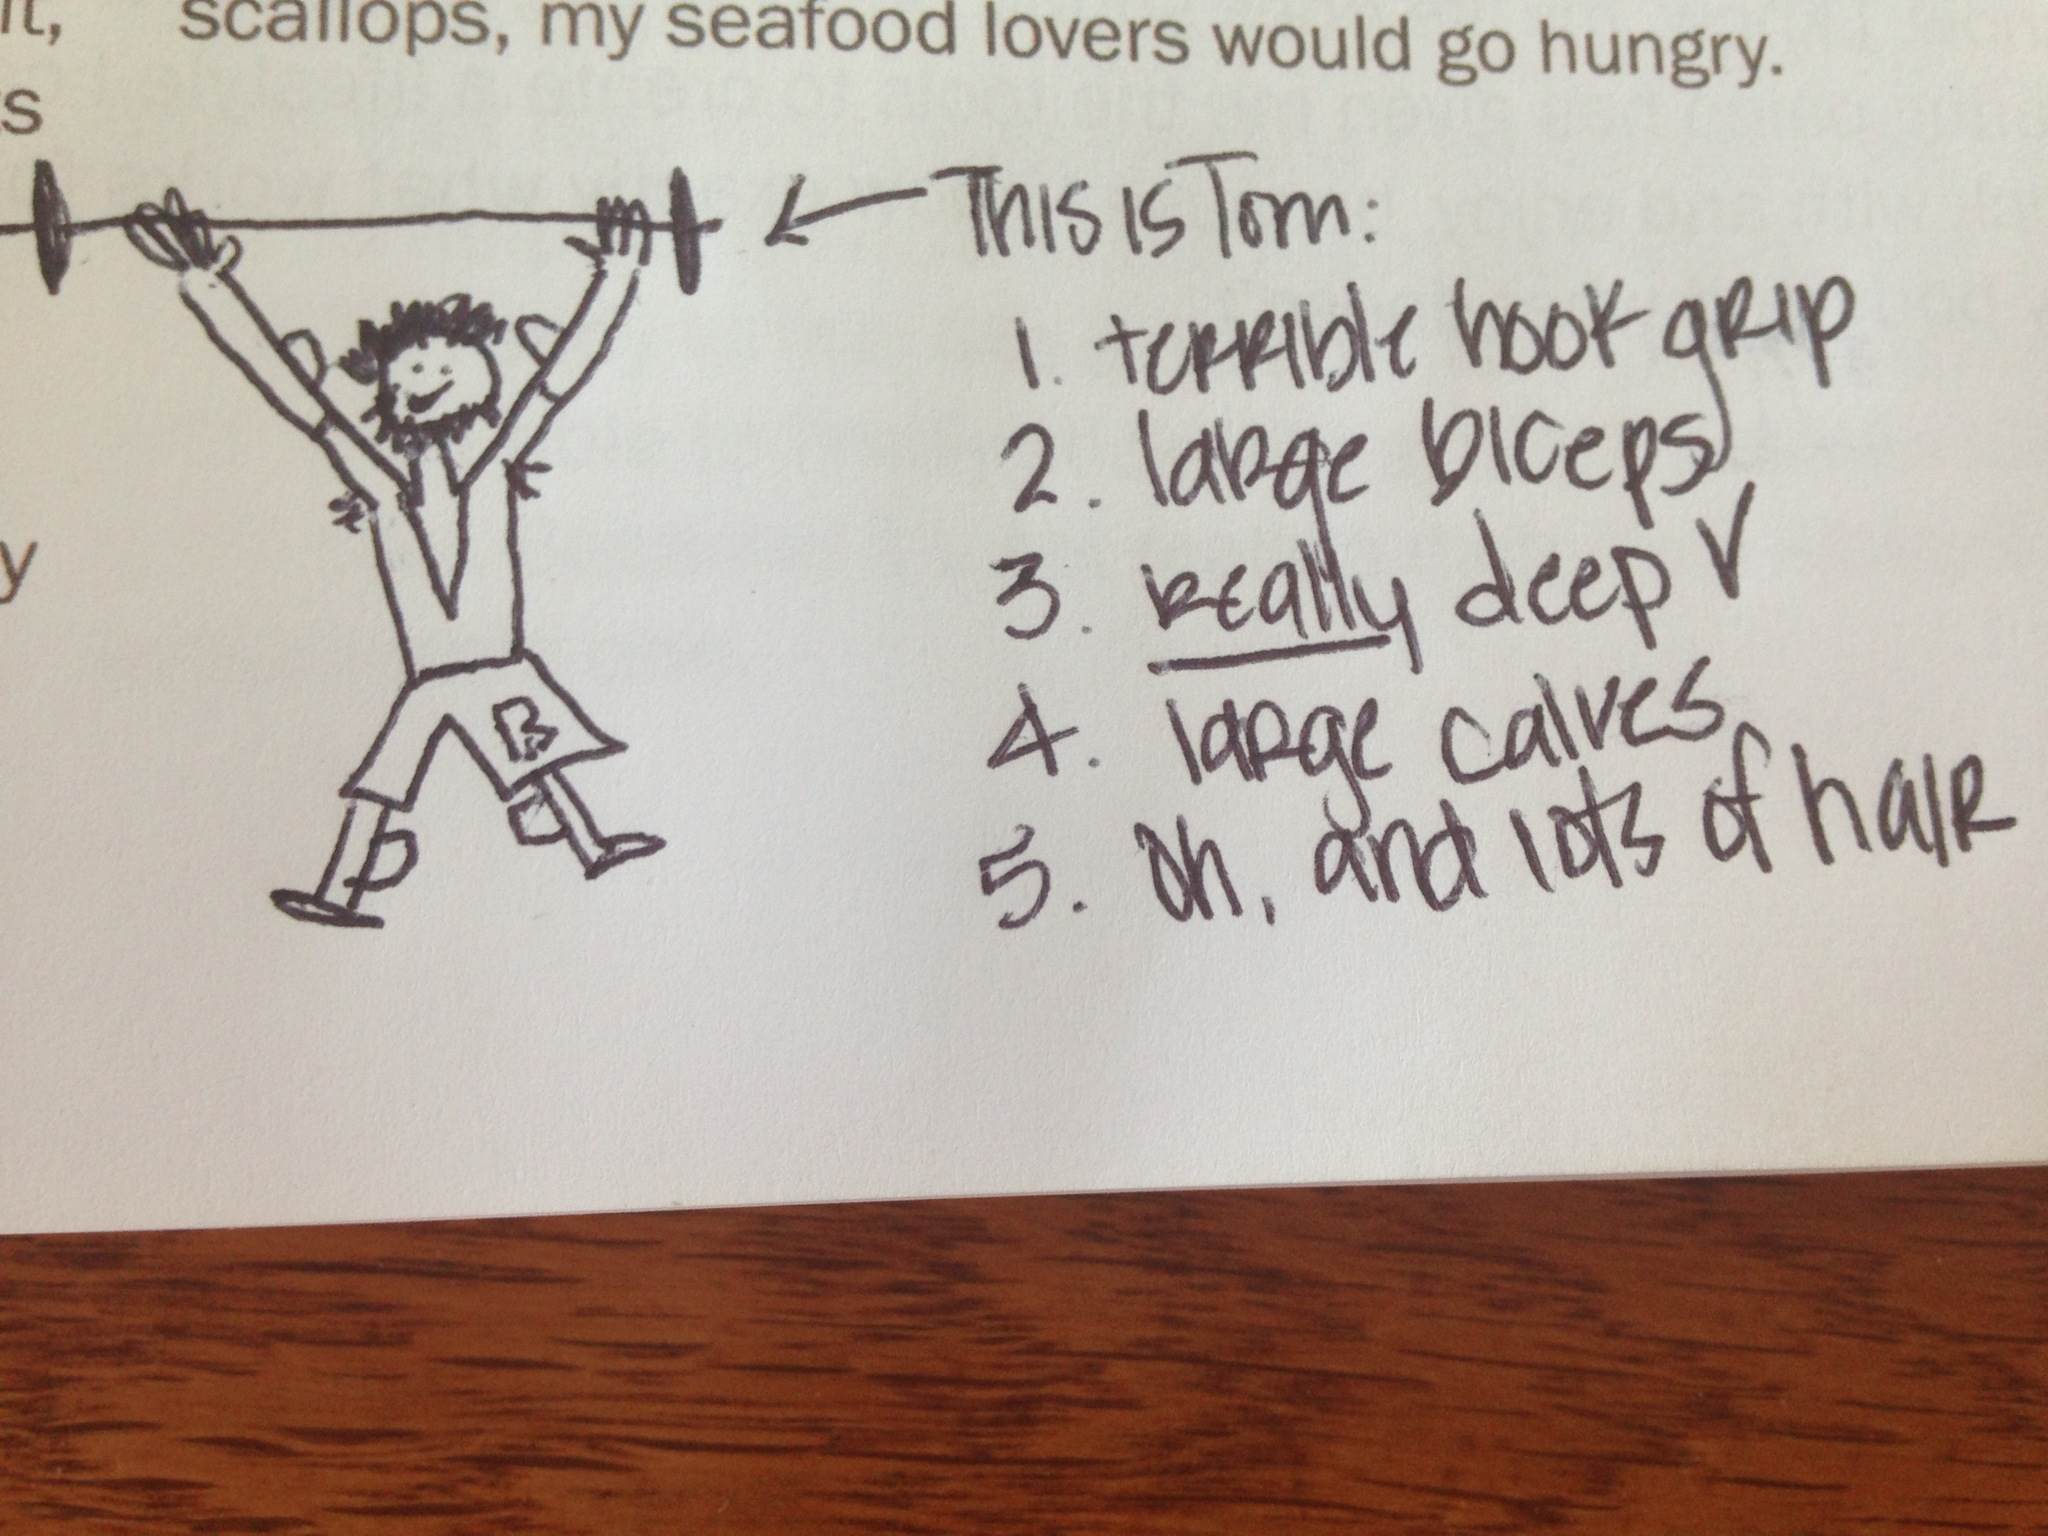 it,
scallops, my seafood lovers would go hungry.
s
y
This is Tom:
1. terrible hook grip
2. large biceps
3. really deep V
4. large calves
5. Oh, and lots of hair
B